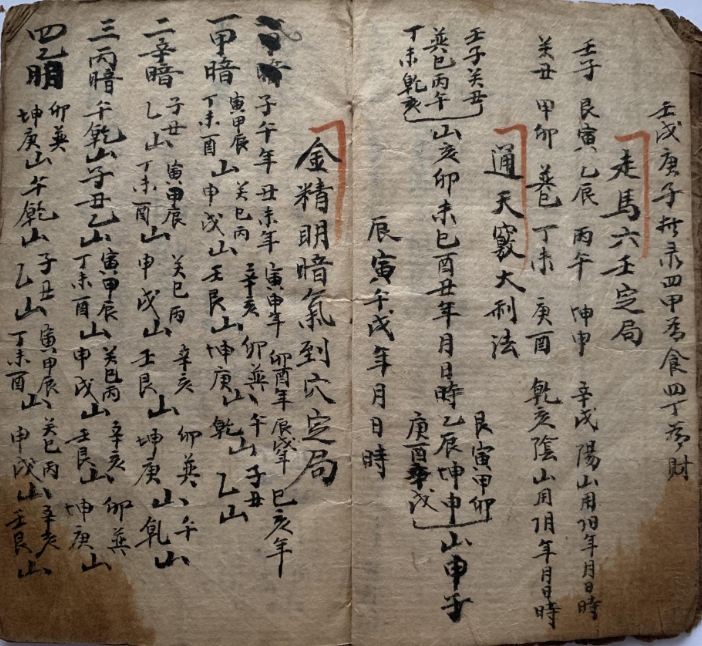 壬戌庚子四甲為食四丁為財
走馬六壬定局
壬子 艮寅 乙辰 丙午 坤申 辛戌陽山用阳年月日時
癸丑 甲卯 巽巳 丁未 庚酉 乾亥陰山用阴年月日時
通天竅大利法
壬子癸丑
巽巳丙午
丁未乾亥
山亥卯未巳酉丑年月日時
艮寅甲卯
乙辰坤申
庚酉辛戌
山申子
辰寅午戌年月日時
金精明暗氣到穴定局
子午年 丑未年 寅申年 卯酉年 辰戌年 巳亥年
一甲暗 寅甲辰丁未酉山 癸巳丙申戌山 辛亥壬艮山 卯巽坤庚山 午乾山 子丑乙山
二辛暗 子丑乙山 寅甲辰丁未酉山 癸巳丙申戌山 辛亥壬艮山 卯巽坤庚山 午乾山
三丙暗 午乾山 子丑乙山 寅甲辰丁未酉山 癸巳丙申戌山 辛亥壬艮山 卯巽坤庚山
四乙明 卯巽坤庚山 午乾山 子丑乙山 寅甲辰丁未酉山 癸巳丙申戌山 辛亥壬艮山